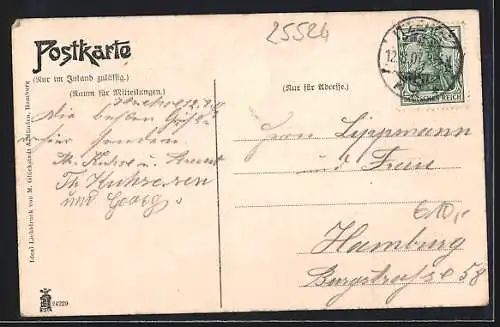 25524
Postkarte
(Nur im Inland zulässig.)
(Raum für Mitteilungen.)
(Nur für Adresse.)
12.8.07
DEUTSCHES REICH
Die besten Grüße
senden
u.
Th. Kuhse
und Georg
Herrn Lippmann
und Frau
€10,-
Hamburg
Burgstrasse 58
Ideal-Lichtdruck von M. Glückstadt & Münden, Hamburg
24229